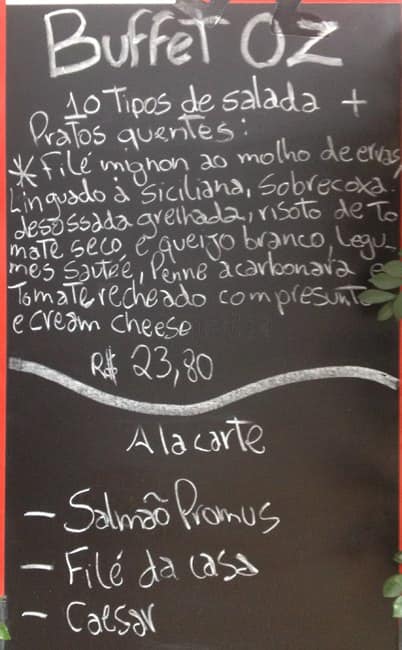 Buffet OZ
10 Tipos de salada +
Pratos quentes:
* Filé mignon ao molho de ervas,
Linguado à siciliana, Sobrecoxa
desossada grelhada, risoto de To
mate seco e queijo branco, Legu-
mes sautée, Penne a carbonara e
Tomate recheado com presunto
e cream cheese
R$ 23,80
A la carte
- Salmão Promus
- Filé da casa
- Caesar